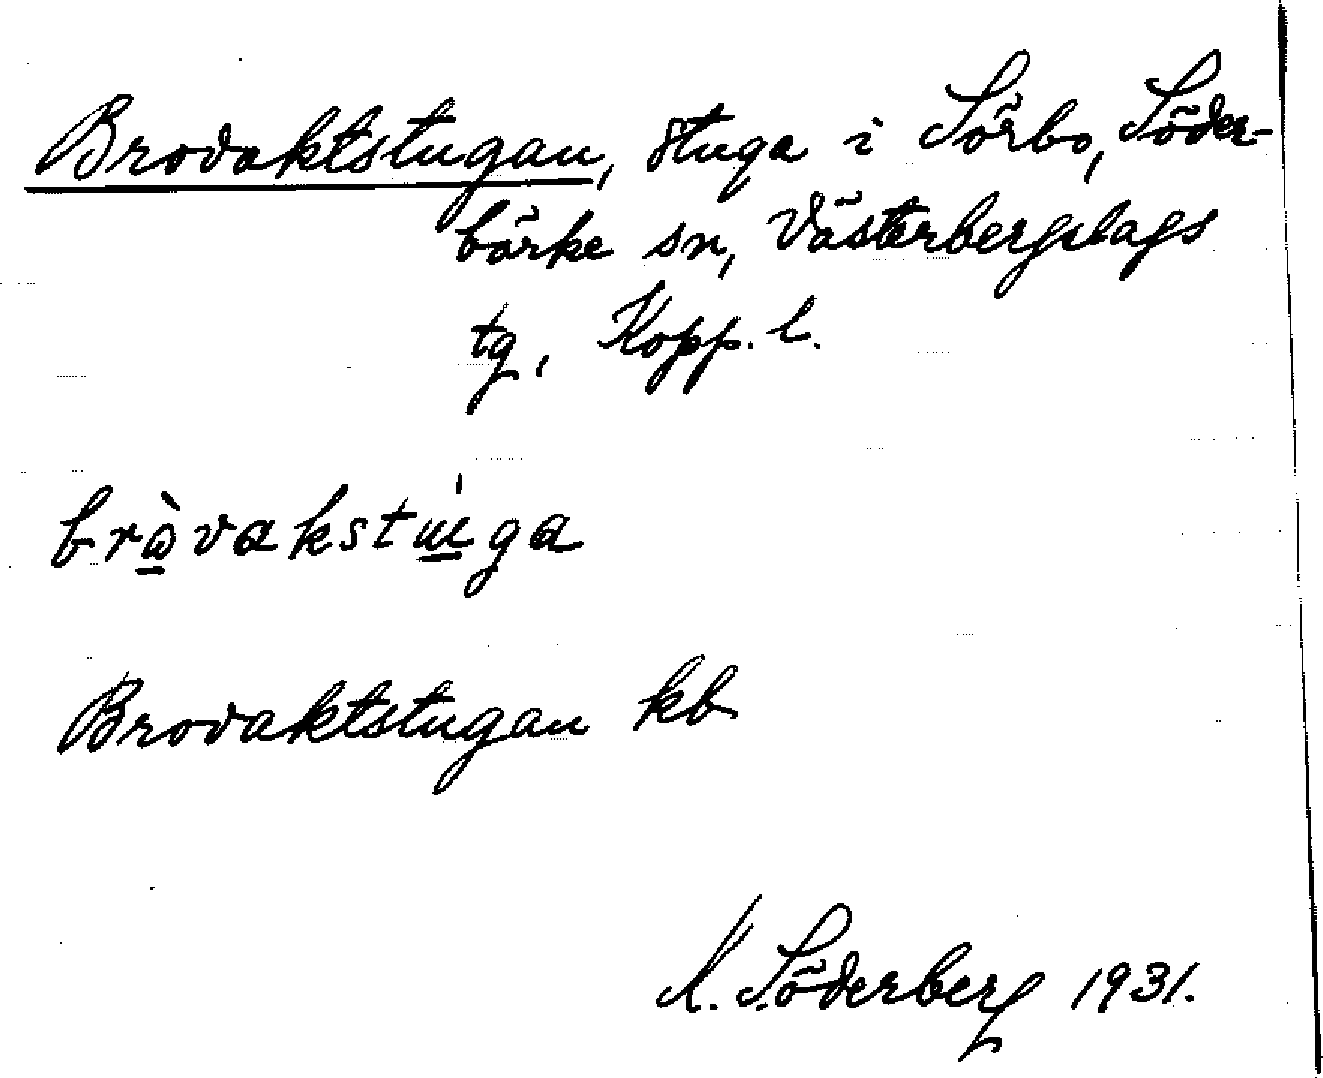 Brovaktstugan, stuga i Sörbo, Söder-
bärke sn, Västerbergslags
tg, Kopp. l.
bròvakstuga
Brovaktstugan kb
K. Söderberg 1931.